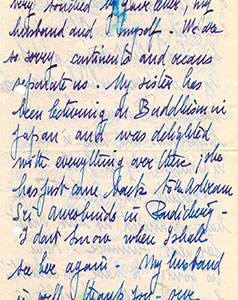 very touched by your letter, my
husband and I myself. We are
so sorry continents and oceans
separate us. My sister has
been lecturing on Buddhism in
Japan and was delighted
with everything over there, she
has just come back to the Adhram
Sri Aurobindo in Pondichery -
I don't know when I shall
see her again. My husband
is well, thank you - one